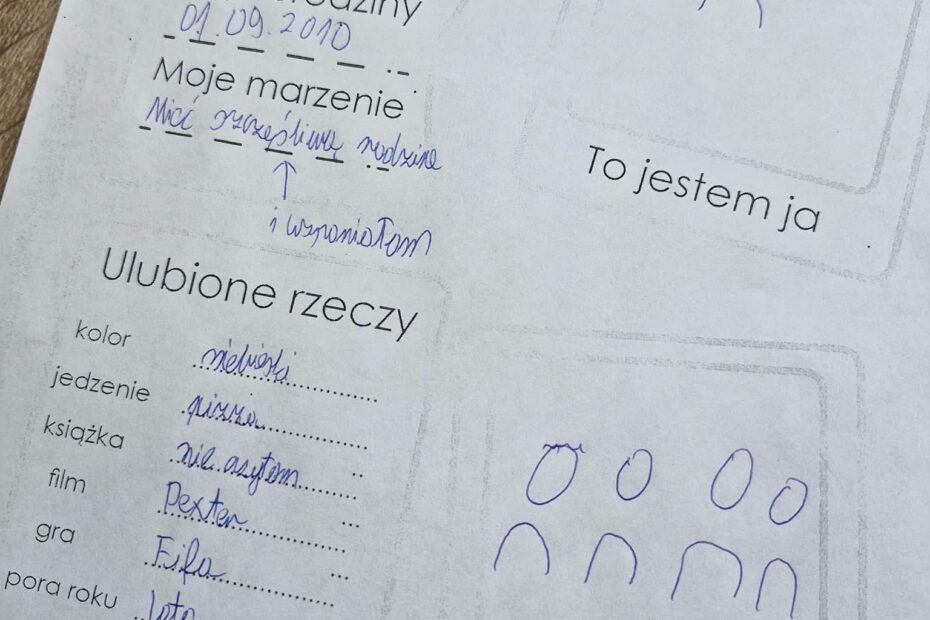 01.09.2010
Moje marzenie
Mieć szczęśliwą rodzinę
i wspaniałom
To jestem ja
Ulubione rzeczy
kolor niebieski
jedzenie pizza
książka nie czytam
film Dexter
gra Fifa
pora roku lato